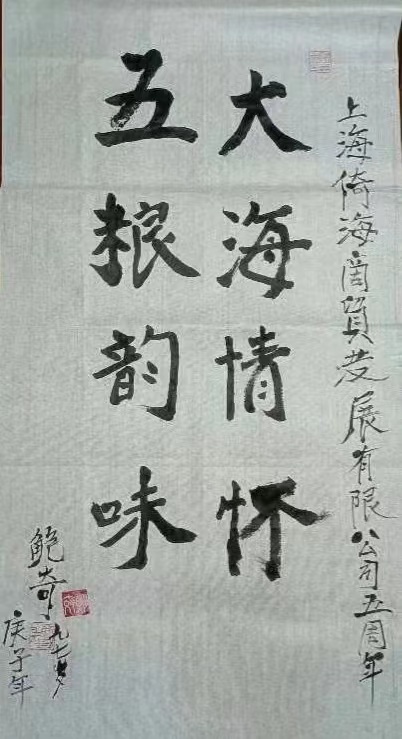 上海倚海商貿发展有限公司五周年
大海情怀
五粮韵味
鲍奇
九七岁
庚子年